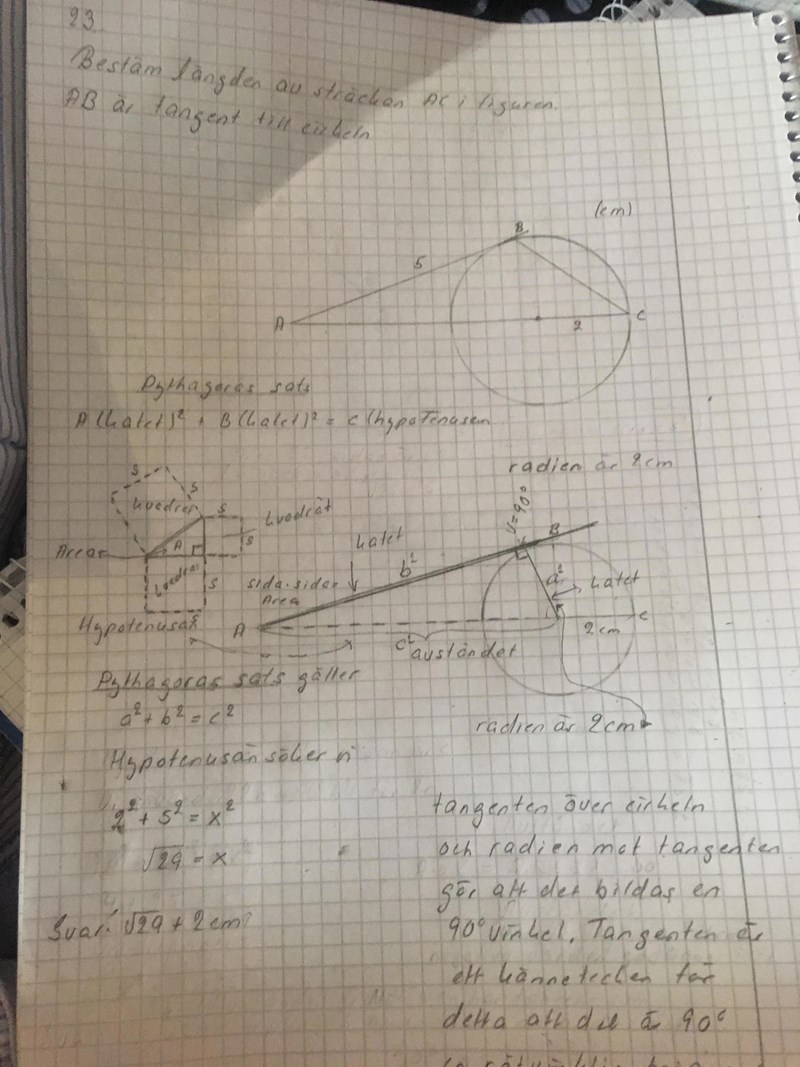 23
Bestäm längden av sträckan AC i figuren.
AB är tangent till cirkeln
(cm)
B
5
A
2
C
Pythagoras sats
A (katet)² + B (katet)² = c (hypotenusan
radien är 2cm
S
S
kvadrat
S
kvadrat
S
Area
A
kvadrat
S
sida·sida
Area
katet
b²
v=90°
B
a²
katet
Hypotenusan
A
c²
avståndet
2cm
c
Pythagoras sats gäller
a² + b² = c²
radien är 2cm
Hypotenusan söker vi
2² + 5² = x²
√29 = x
Svar: √29 + 2cm
tangenten över cirkeln
och radien mot tangenten
gör att det bildas en
90° vinkel. Tangenten är
ett kännetecken för
detta att det är 90°